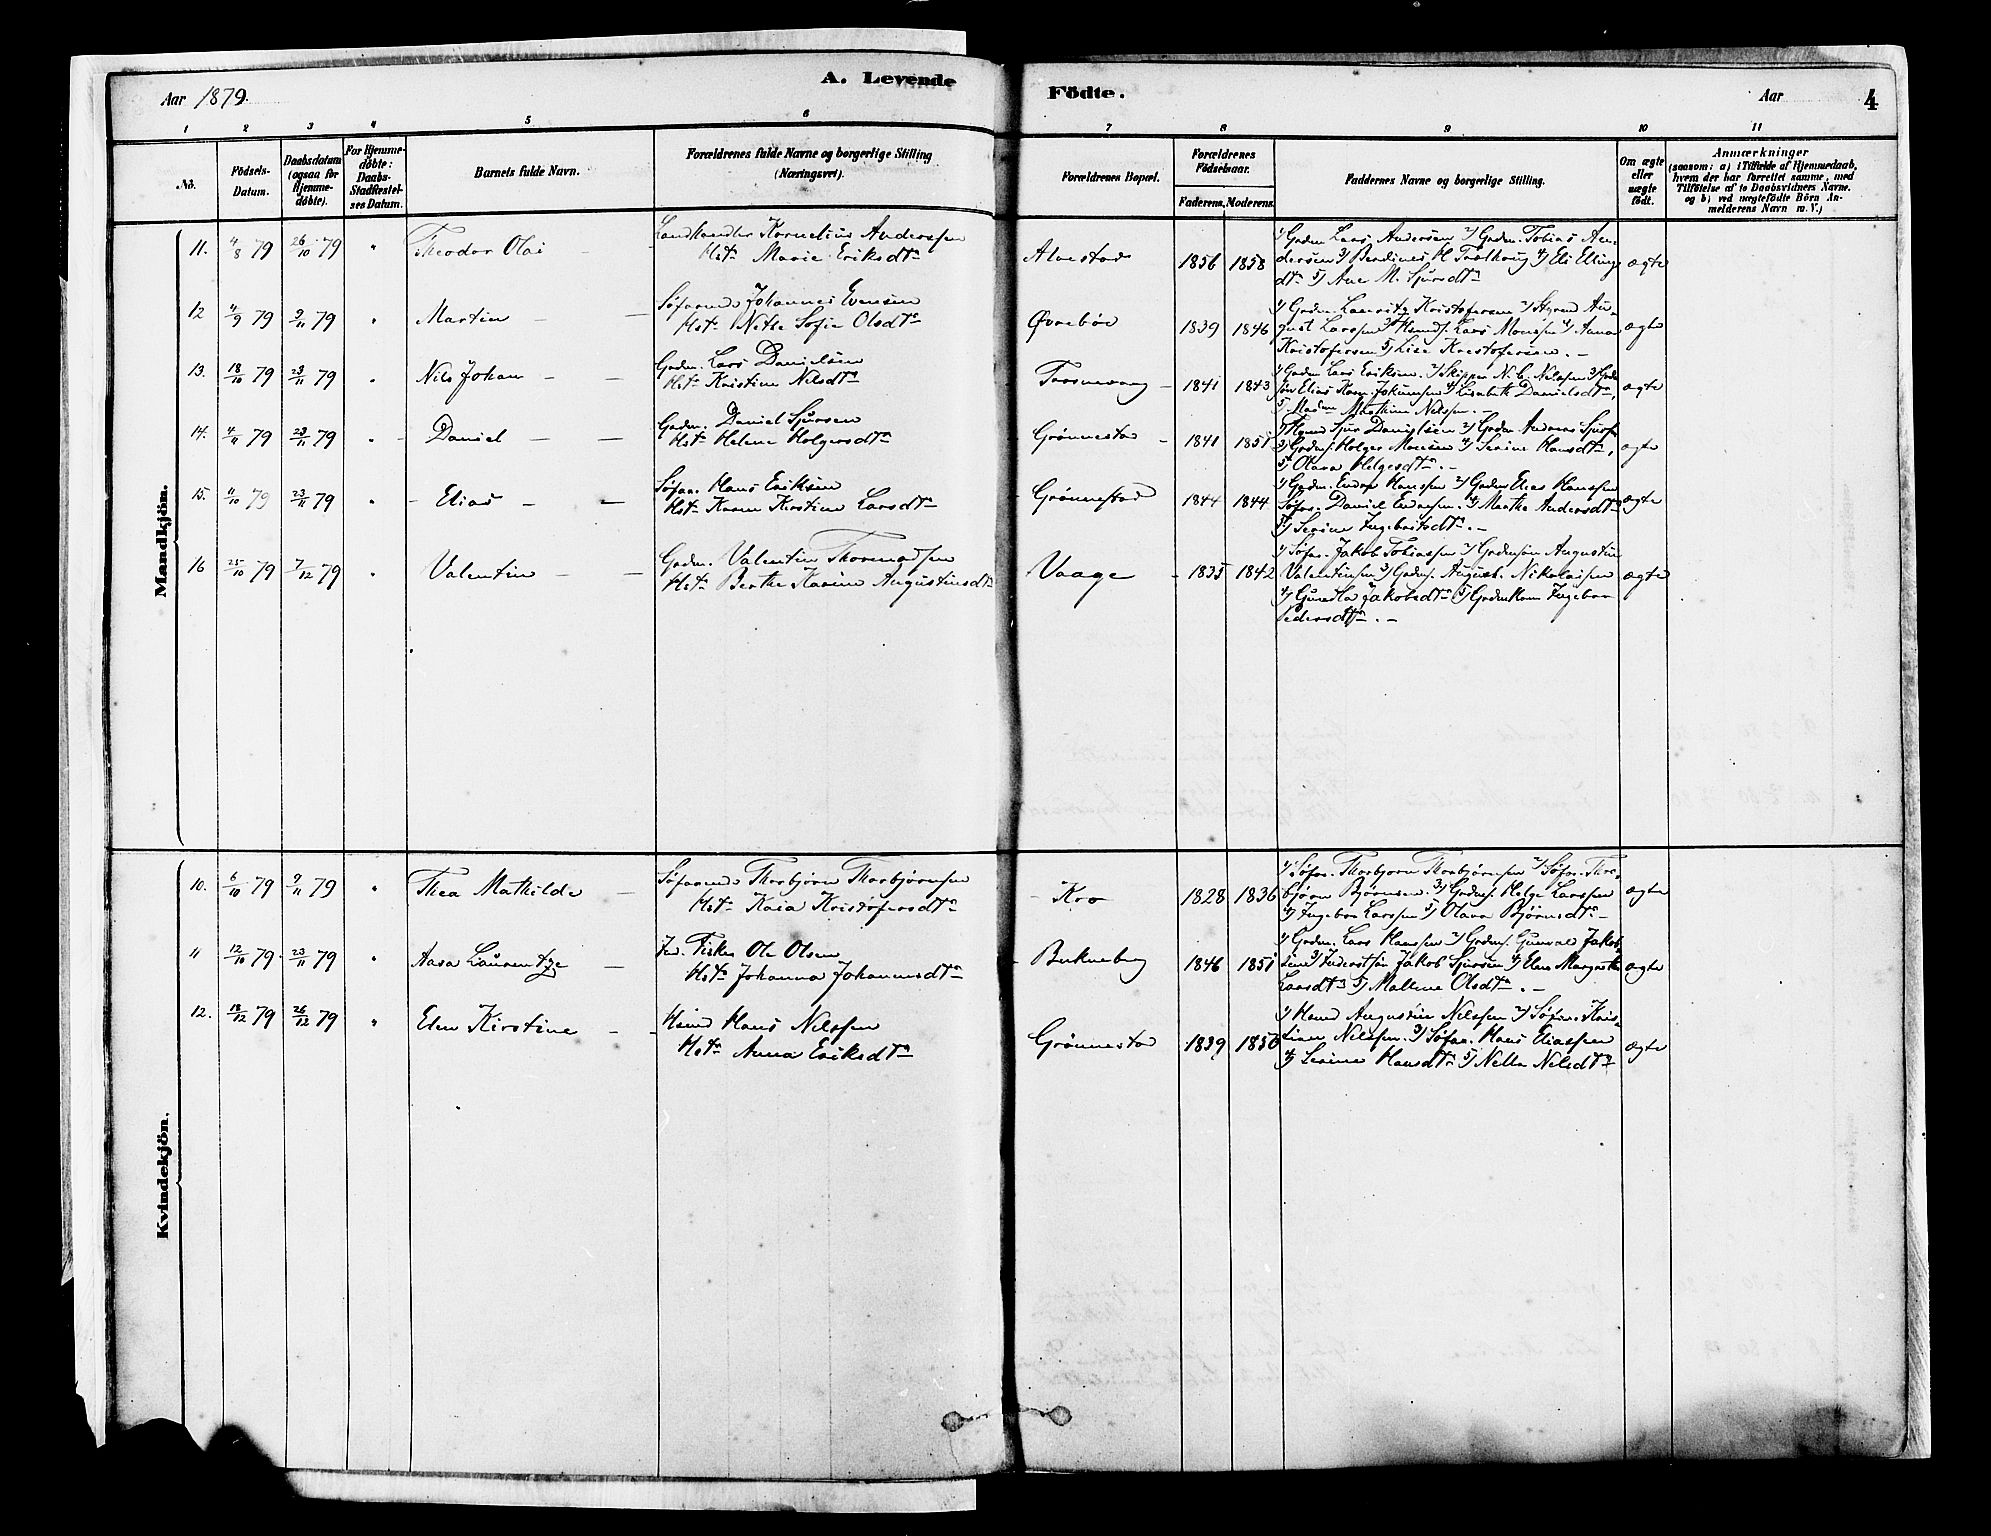 A. Levende Födte.
Aar 1879.
Aar
4
1 2 3 4 5 6 7 8 9 10 11
No.
Födsels-Datum.
Daabsdatum (ogsaa for Hjemme-döbte).
For Hjemme-döbte: Daabs-Stadfæstel-ses Datum.
Barnets fulde Navn.
Forældrenes fulde Navne og borgerlige Stilling (Næringsvei).
Forældrenes Bopæl.
Forældrenes Födselsaar.
Faderens. Moderens.
Faddernes Navne og borgerlige Stilling.
Om ægte eller uægte födt.
Anmærkninger
(saasom: a) i Tilfælde af Hjemmedaab, hvem der har forrettet samme, med Tilföielse af to Daabsvidners Navne. og b) ved uægtefödte Börn Anmelderens Navn m. V.)
Mandkjön.
11. 4/8 79 26/10 79 " Theodor Olai Landhandler Kornelius Anderssen
Hst. Marie Eriksdtr Alvestad 1856 1858 1) Grdm. Lars Andersen 2) Grdm. Tobias An-
dersen 3) Berdines M. 4) Eli Elling
dtr 5) Ane M. Sjursdtr ægte
12 4/9 79 9/11 79 " Martin Søfarende Johannes Evensen
Hst. Nethe Sofie Olsdtr Øvrebøe 1839 1846 1) Grdm. Lauritz Kristofersen 2) Styrmd Au-
gust Larssen 3) Lars Monssen 4) Anna
Kristofersen 5) Lise Kristofersen. ægte
13. 18/10 79 23/11 79 " Nils Johan Grdm. Lars Danielsen
Hst. Kristine Nilsdtr 1841 1843 1) Grdm Lars Eriksen 2) Skipper N. C. Nilssen 3)
Elias Korn. Jokumsen 4) Lisabeth Danielsdtr,
5) Madm Mathine Nilssen. ægte
14. 4/11 79 23/11 79 " Daniel Grdm. Daniel Sjursen
Hst. Helene Holgersdtr Grönnestad 1841 1851 1) Sjur Danielsen 2) Grdm Andreas Sjurs.
3) Grdms. Holger Monsen 4) Serine Hansdtr,
5) Olava Helgesdtr. ægte
15. 11/10 79 23/11 79 " Elias Søfar. Hans Eriksen
Hst. Karen Kirstine Larsdtr Grönnestad 1844 1844 1) Grdm. Endre Hanssen 2) Grdm Elias Hanssen
Søfar. Daniel Endresen. 4) Marthe Andersdtr
5) Serine Ingebritsdtr. ægte
16 25/10 79 7/12 79 " Valentin Grdm. Valentin Thormodsen
Hst. Berthe Karine Augustinusdtr Vaage 1835 1842 1) Søfar. Jakob Tobiassen 2) Grdmsøn Augustin
Valentinsen 3) Grdms. August. Nikolaisen
4) Gunila Jakobsdtr 5) Grdmkone Ingebor
Pedersdtr. ægte
Kvindekjön.
10. 6/10 79 9/11 79 " Thea Mathilde Søfarende Thorbjørn Thorbjørnsen
Hst. Kaia Kristofersdtr Kro 1828 1836 1) Søfar. Thorbjørn Thorbjørnsen 2) Søfar. Thor-
bjørn Bjørnsen. 3) Grdms. Helge Larssen
4) Ingebor Larssen 5) Olava Bjørnsdtr ægte
11 12/10 79 23/11 79 " Aasa Laurentze Ind. Fisker Ole Olsen
Hst. Johanna Johannesdtr Bukneberg 1846 1851 1) Grdm. Lars Hanssen 2) Grdms. Gunvald Jakob-
sen 3) Inderstsøn Jakob Sjursen 4) Elen Margrethe
Larsdtr 5) Mallene Olsdtr. ægte
12. 13/12 79 26/12 79 " Elen Kirstine Hmd Hans Nilssen
Hst. Anna Eriksdtr Grönnestad 1839 1850 1) Hmd Augustin Nilssen 2) Søfar. Kris-
tian Nilssen. 3) Søfar. Hans Eliassen
4) Serine Hansdtr 5) Nella Nilsdtr ægte